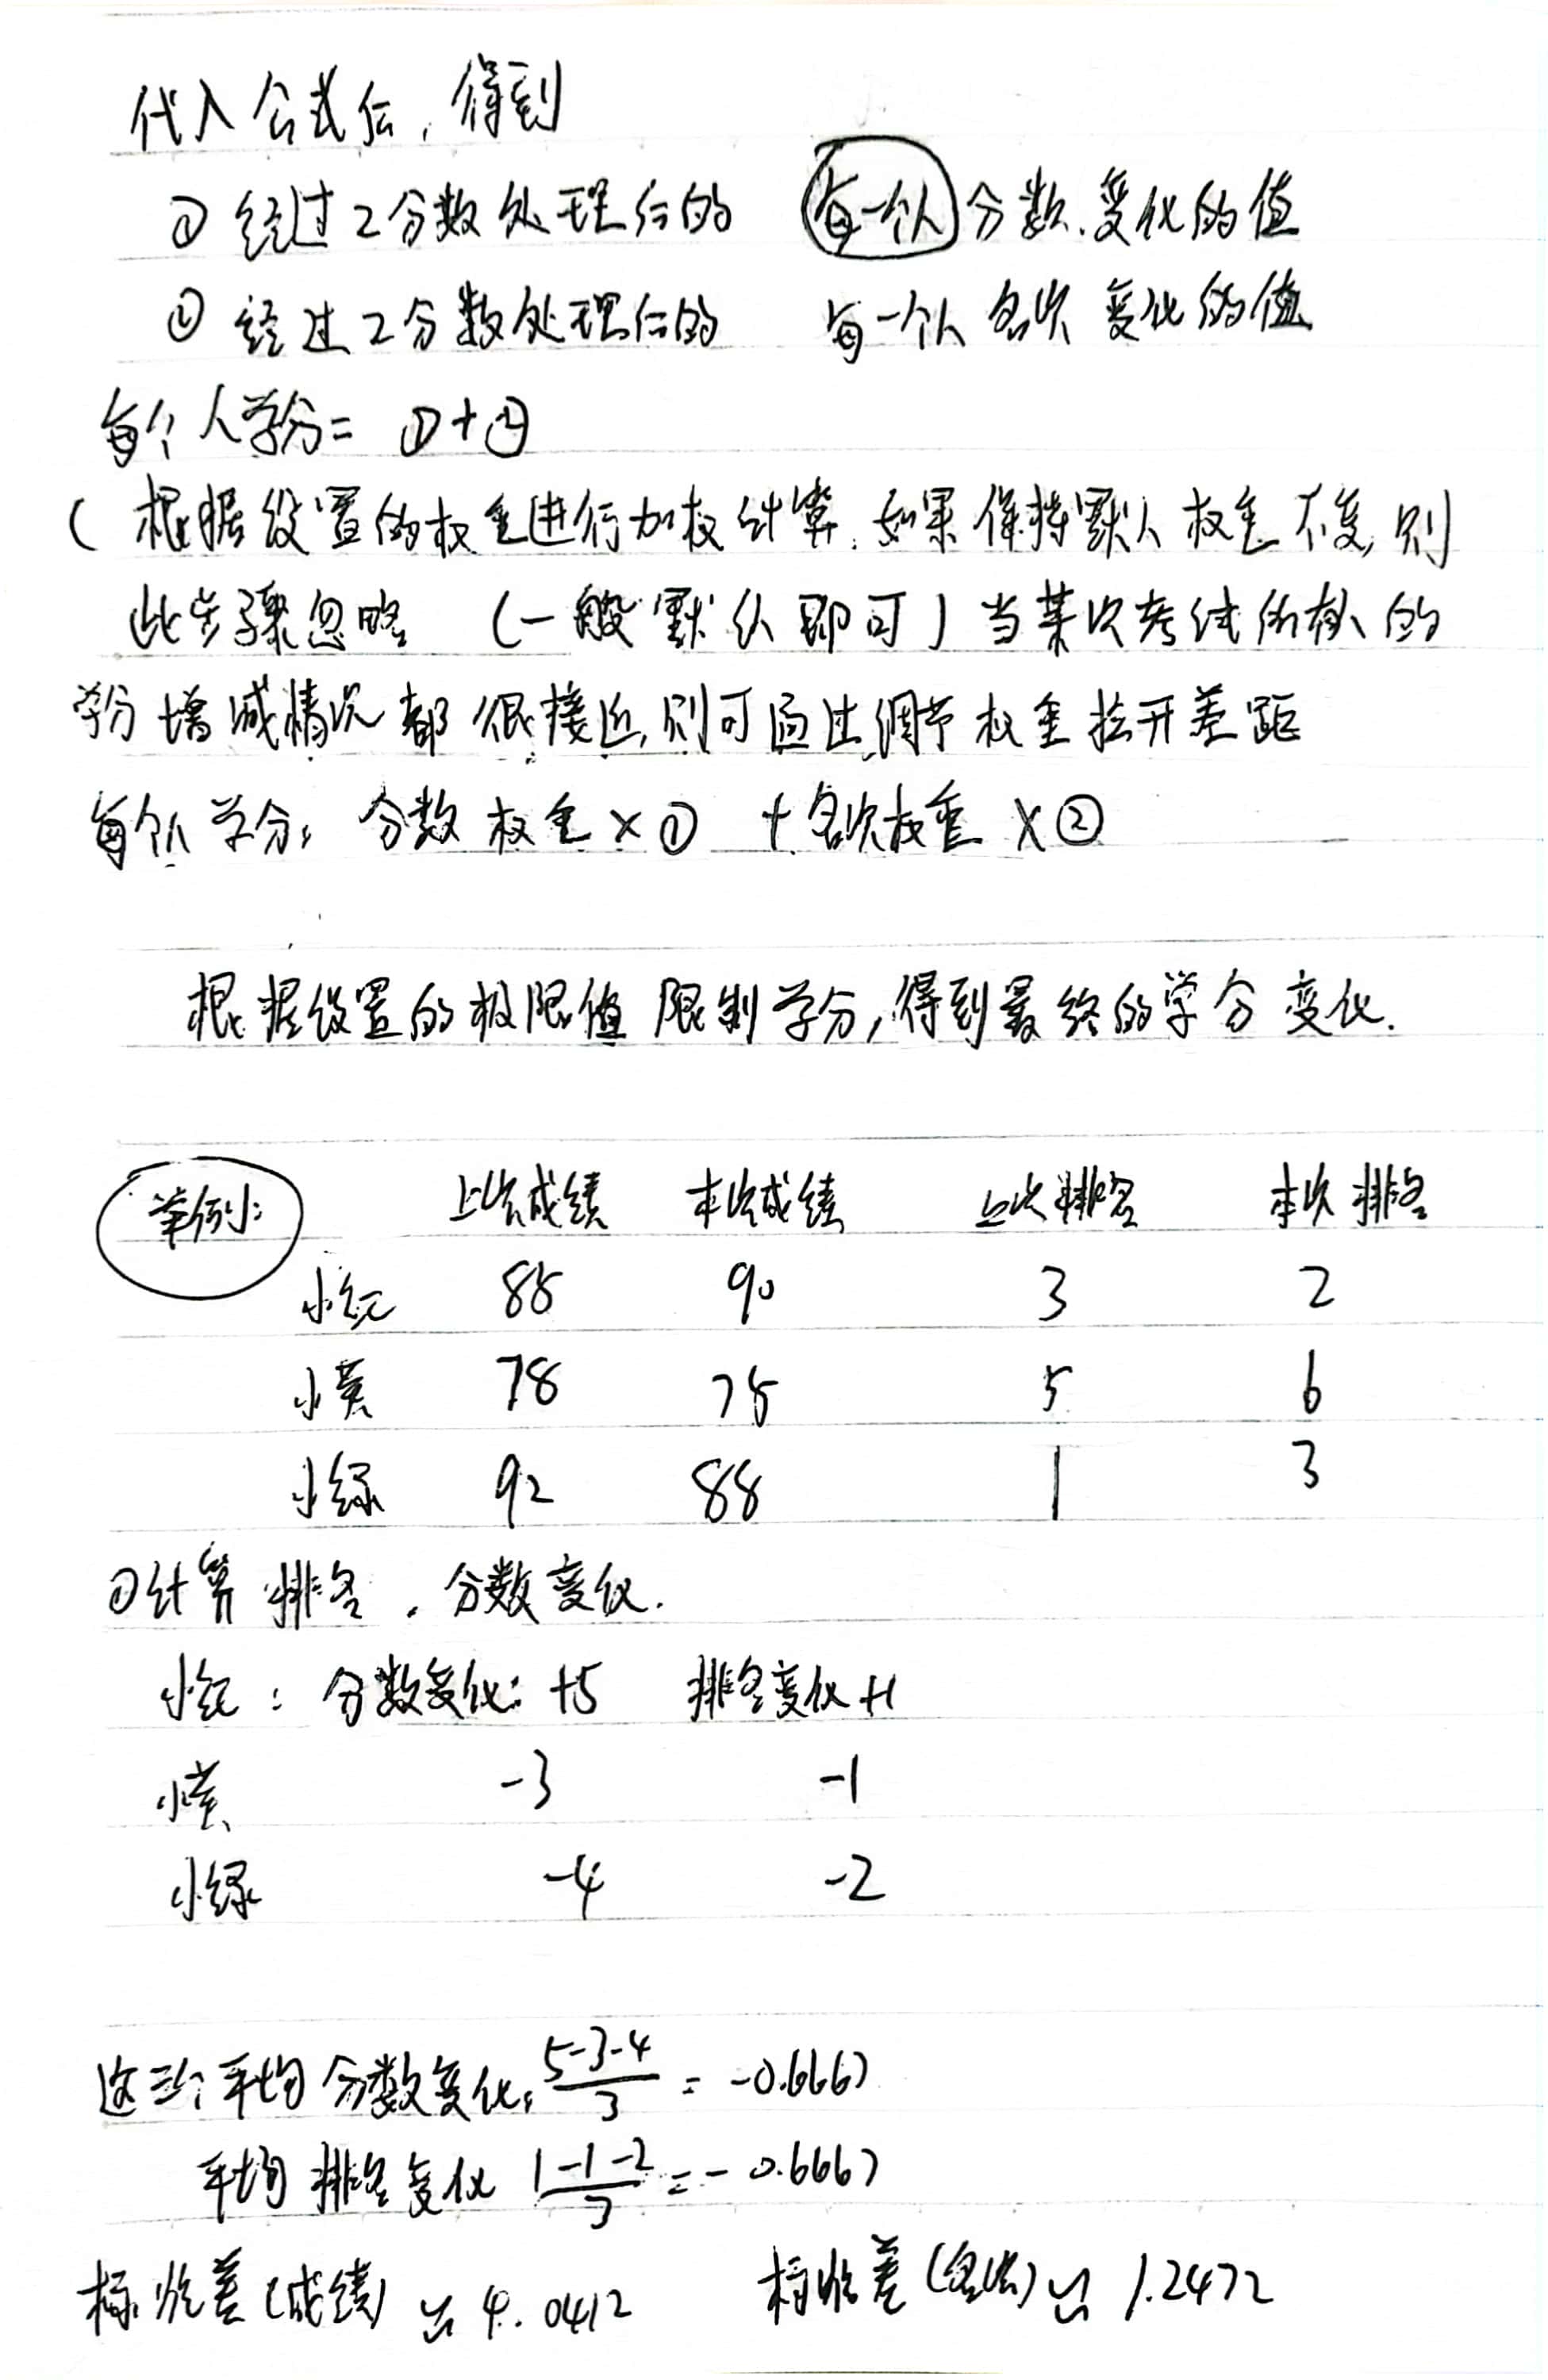 代入公式后,得到
① 经过Z分数处理后的 每一个人分数变化的值
② 经过Z分数处理后的 每一个人名次变化的值
每个人学分= ①+②
(根据设置的权重进行加权计算.如果保持默认权重不变,则
此步骤忽略 (一般默认即可)当某次考试所有人的
学分增减情况都很接近,则可通过调节权重拉开差距
每个人学分: 分数权重×① +名次权重×②
根据设置的极限值限制学分,得到最终的学分变化.
举例: 上次成绩 本次成绩 上次排名 本次排名
小红 85 90 3 2
小黄 78 75 5 6
小绿 92 88 1 3
①计算排名.分数变化.
小红: 分数变化: +5 排名变化+1
小黄 -3 -1
小绿 -4 -2
这三个平均分数变化: 5-3-4/3 = -0.6667
平均排名变化 1-1-2/3 = -0.6667
标准差(成绩)≈4.0412 标准差(名次)≈1.2472